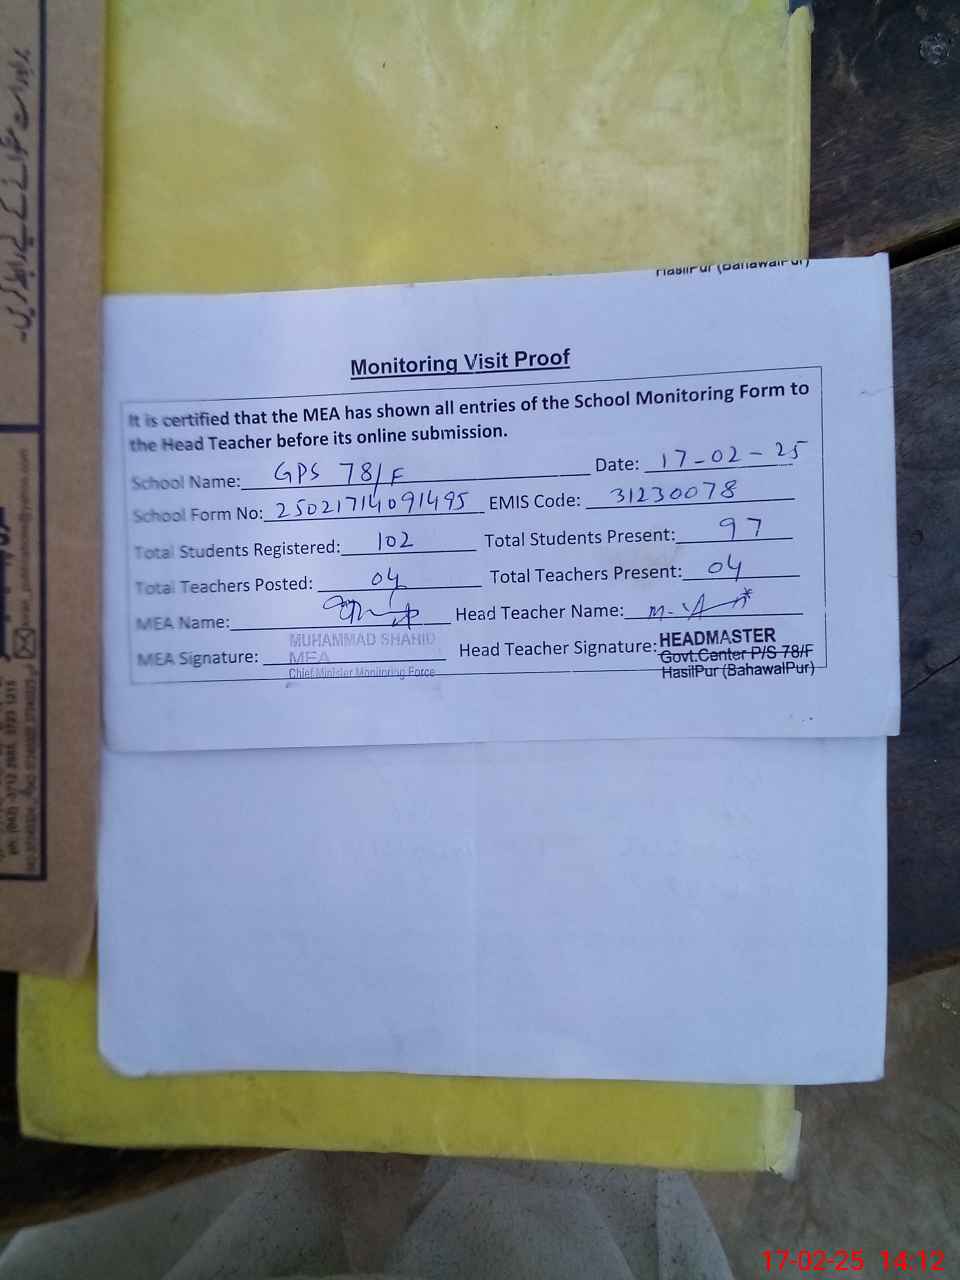 HasilPur (BahawalPur)
Monitoring Visit Proof
It is certified that the MEA has shown all entries of the School Monitoring Form to
the Head Teacher before its online submission.
School Name: GPS 78/F Date: 17-02-25
School Form No: 25021714091495 EMIS Code: 31230078
Total Students Registered: 102 Total Students Present: 97
Total Teachers Posted: 04 Total Teachers Present: 04
MEA Name: Head Teacher Name:
MEA Signature: MUHAMMAD SHAHID
MEA
Chief Minister Monitoring Force
Head Teacher Signature: HEADMASTER
Govt.Center P/S 78/F
HasilPur (BahawalPur)
17-02-25 14:12